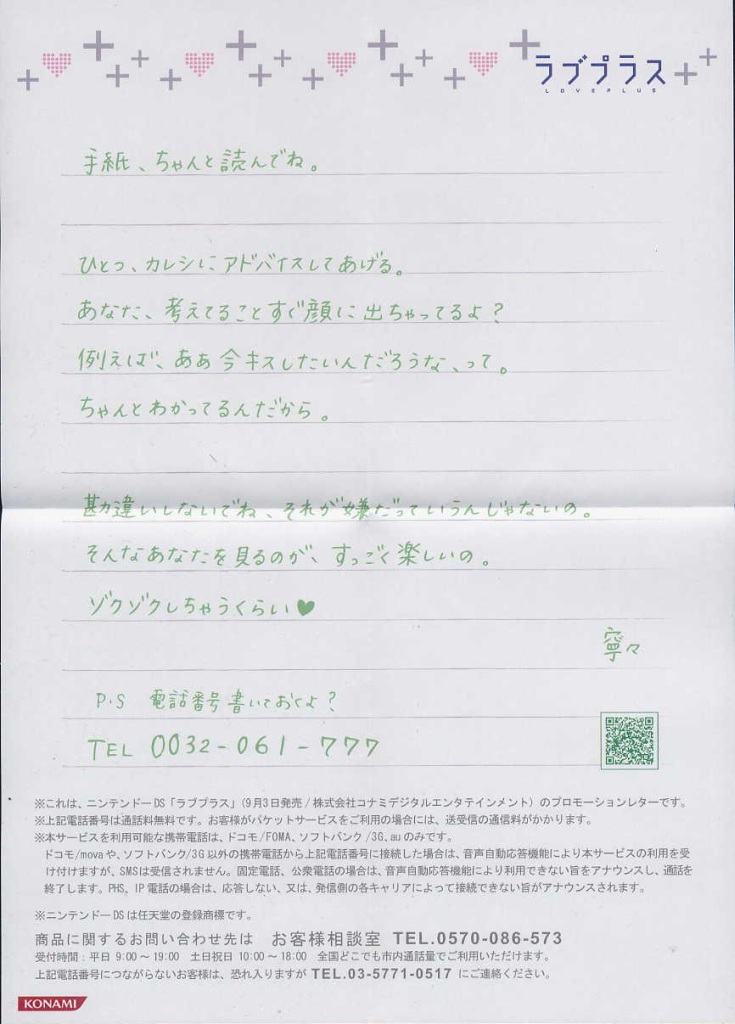 ラブプラス
LOVEPLUS
手紙、ちゃんと読んでね。
ひとつ、カレシにアドバイスしてあげる。
あなた、考えてることすぐ顔に出ちゃってるよ?
例えば、ああ今キスしたいんだろうな、って。
ちゃんとわかってるんだから。
勘違いしないでね、それが嫌だっていうんじゃないの。
そんなあなたを見るのが、すっごく楽しいの。
ゾクゾクしちゃうくらい♥
寧々
P.S 電話番号書いておくよ?
TEL 0032-061-777
※これは、ニンテンドーDS「ラブプラス」(9月3日発売/株式会社コナミデジタルエンタテインメント)のプロモーションレターです。
※上記電話番号は通話料無料です。お客様がパケットサービスをご利用の場合には、送受信の通信料がかかります。
※本サービスを利用可能な携帯電話は、ドコモ/FOMA、ソフトバンク/3G、auのみです。
ドコモ/movaや、ソフトバンク/3G以外の携帯電話から上記電話番号に接続した場合は、音声自動応答機能により本サービスの利用を受
け付けますが、SMSは受信されません。固定電話、公衆電話の場合は、音声自動応答機能により利用できない旨をアナウンスし、通話を
終了します。PHS、IP電話の場合は、応答しない、又は、発信側の各キャリアによって接続できない旨がアナウンスされます。
※ニンテンドーDSは任天堂の登録商標です。
商品に関するお問い合わせ先は お客様相談室 TEL.0570-086-573
受付時間:平日 9:00~19:00 土日祝日 10:00~18:00 全国どこでも市内通話量でご利用いただけます。
上記電話番号につながらないお客様は、恐れ入りますが TEL.03-5771-0517 にご連絡ください。
KONAMI